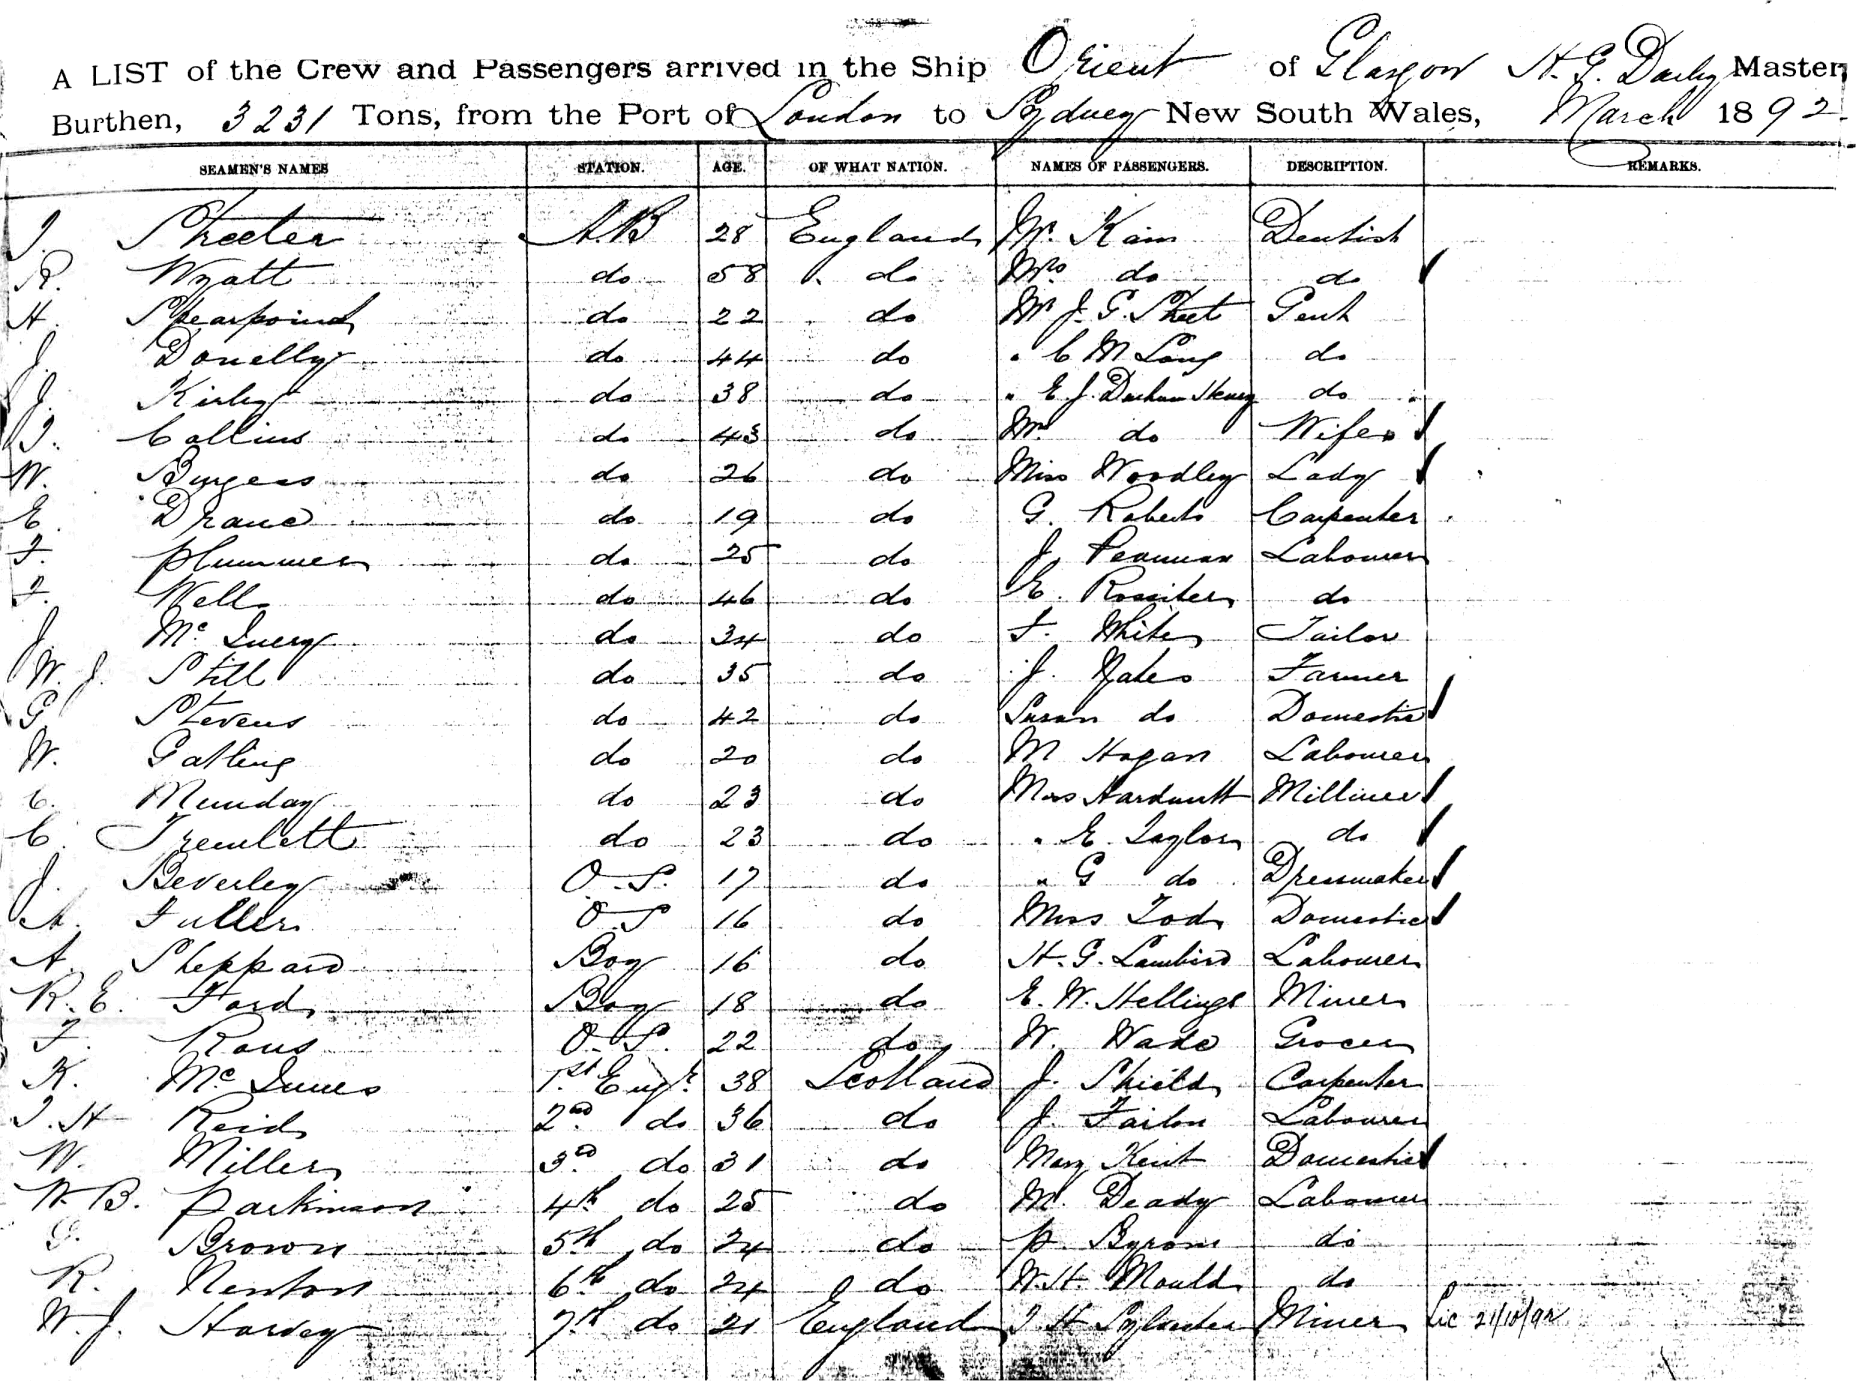 A LIST of the Crew and Passengers arrived in the Ship Orient of Glasgow H. G. Master,
Burthen, 3231 Tons, from the Port of London to Sydney New South Wales, March 1892.
SEAMEN'S NAMES STATION. AGE. OF WHAT NATION. NAMES OF PASSENGERS. DESCRIPTION. REMARKS.
Streeter A.B 28 England Mr. Kain Dentist
R. Wyatt do 58 do Mrs do do
H. Spearpoint do 22 do Mr J. G. Gent
J. Donelly do 44 do " C M Long do
J. Kirby do 38 do " E. J. do
Collins do 43 do do Wife
W. Burgess do 26 do Miss Woodley Lady
E. Drane do 19 do G. Roberts Carpenter
F. Plummer do 25 do J. Labourer
F. Wells do 46 do E. Rossiter do
J. Mc do 34 do F. White Tailor
W. J. Still do 35 do J. Yates Farmer
G. Stevens do 42 do Susan do Domestic
W. Gatling do 20 do M Hogan Labourer
C. Munday do 23 do Miss Milliner
C. Tremlett do 23 do " E. Taylor do
J. Beverley O.S. 17 do " G do Dressmaker
A. Fuller O.S 16 do Miss Tod Domestic
A. Sheppard Boy 16 do H. G. Lambird Labourer
R. E. Ford Boy 18 do E. W. Hellings Miner
F. Rous O.S. 22 do W. Wade Grocer
K. McInnes 1st Engr. 38 Scotland J. Shield Carpenter
J. H Reid 2nd do 36 do J. Labourer
W. Miller 3rd do 31 do Mary Kent Domestic
W. B. Parkinson 4th do 25 do M. Deady Labourer
G. Brown 5th do 24 do P. Byrom do
R. Newton 6th do 24 do W. H. Mould do
W. J. Harvey 7th do 21 England Miner Lic 21/10/92